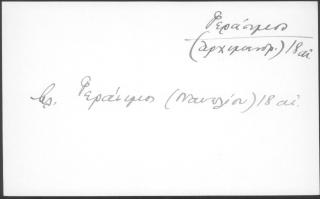 Γεράσιμος
(αρχιμανδρ.) 18 αἰ.
βλ. Γεράσιμος (Ναυπλίου) 18 αἰ.